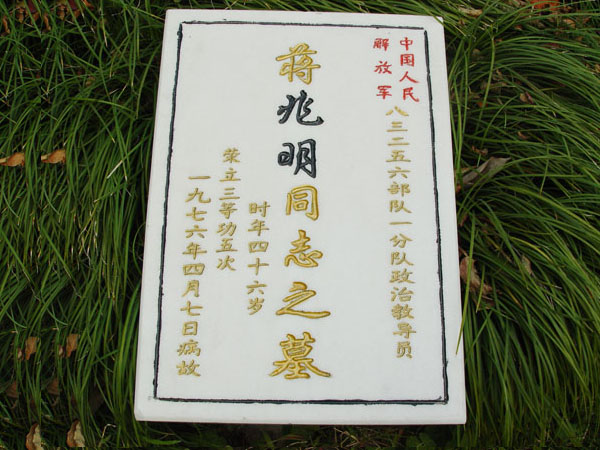 中国人民
解放军
八三二五六部队一分队政治教导员
蒋兆明同志之墓
时年四十六岁
荣立三等功五次
一九七六年四月七日病故